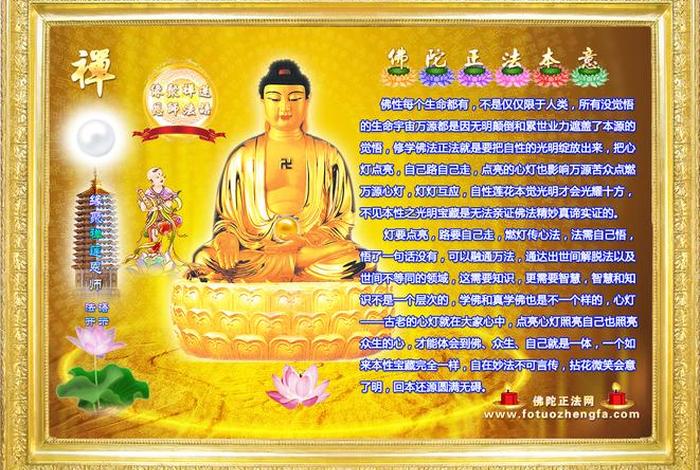 禪
缘聚禅道
恩师法語
佛陀正法本意
佛性每个生命都有，不是仅仅限于人类，所有没觉悟
的生命宇宙万源都是因无明颠倒和累世业力遮盖了本源的
觉悟，修学佛法正法就是要把自性的光明绽放出来，把心
灯点亮，自己路自己走，点亮的心灯也影响万源苦众点燃
万源心灯，灯灯互应，自性莲花本觉光明才会光耀十方，
不见本性之光明宝藏是无法亲证佛法精妙真谛实证的。
灯要点亮，路要自己走，燃灯传心法，法需自己悟，
悟了一句话没有，可以融通万法，通达出世间解脱法以及
世间不等同的领域，这需要知识，更需要智慧，智慧和知
识不是一个层次的，学佛和真学佛也是不一个样的，心灯
——古老的心灯就在大家心中，点亮心灯照亮自己也照亮
众生的心，才能体会到佛、众生、自己就是一体，一个如
来本性宝藏完全一样，自在妙法不可言传，拈花微笑会意
了明，回本还源圆满无碍。
缘聚禅道恩师
法語
开示
佛陀正法网
www.fotuozhengfa.com